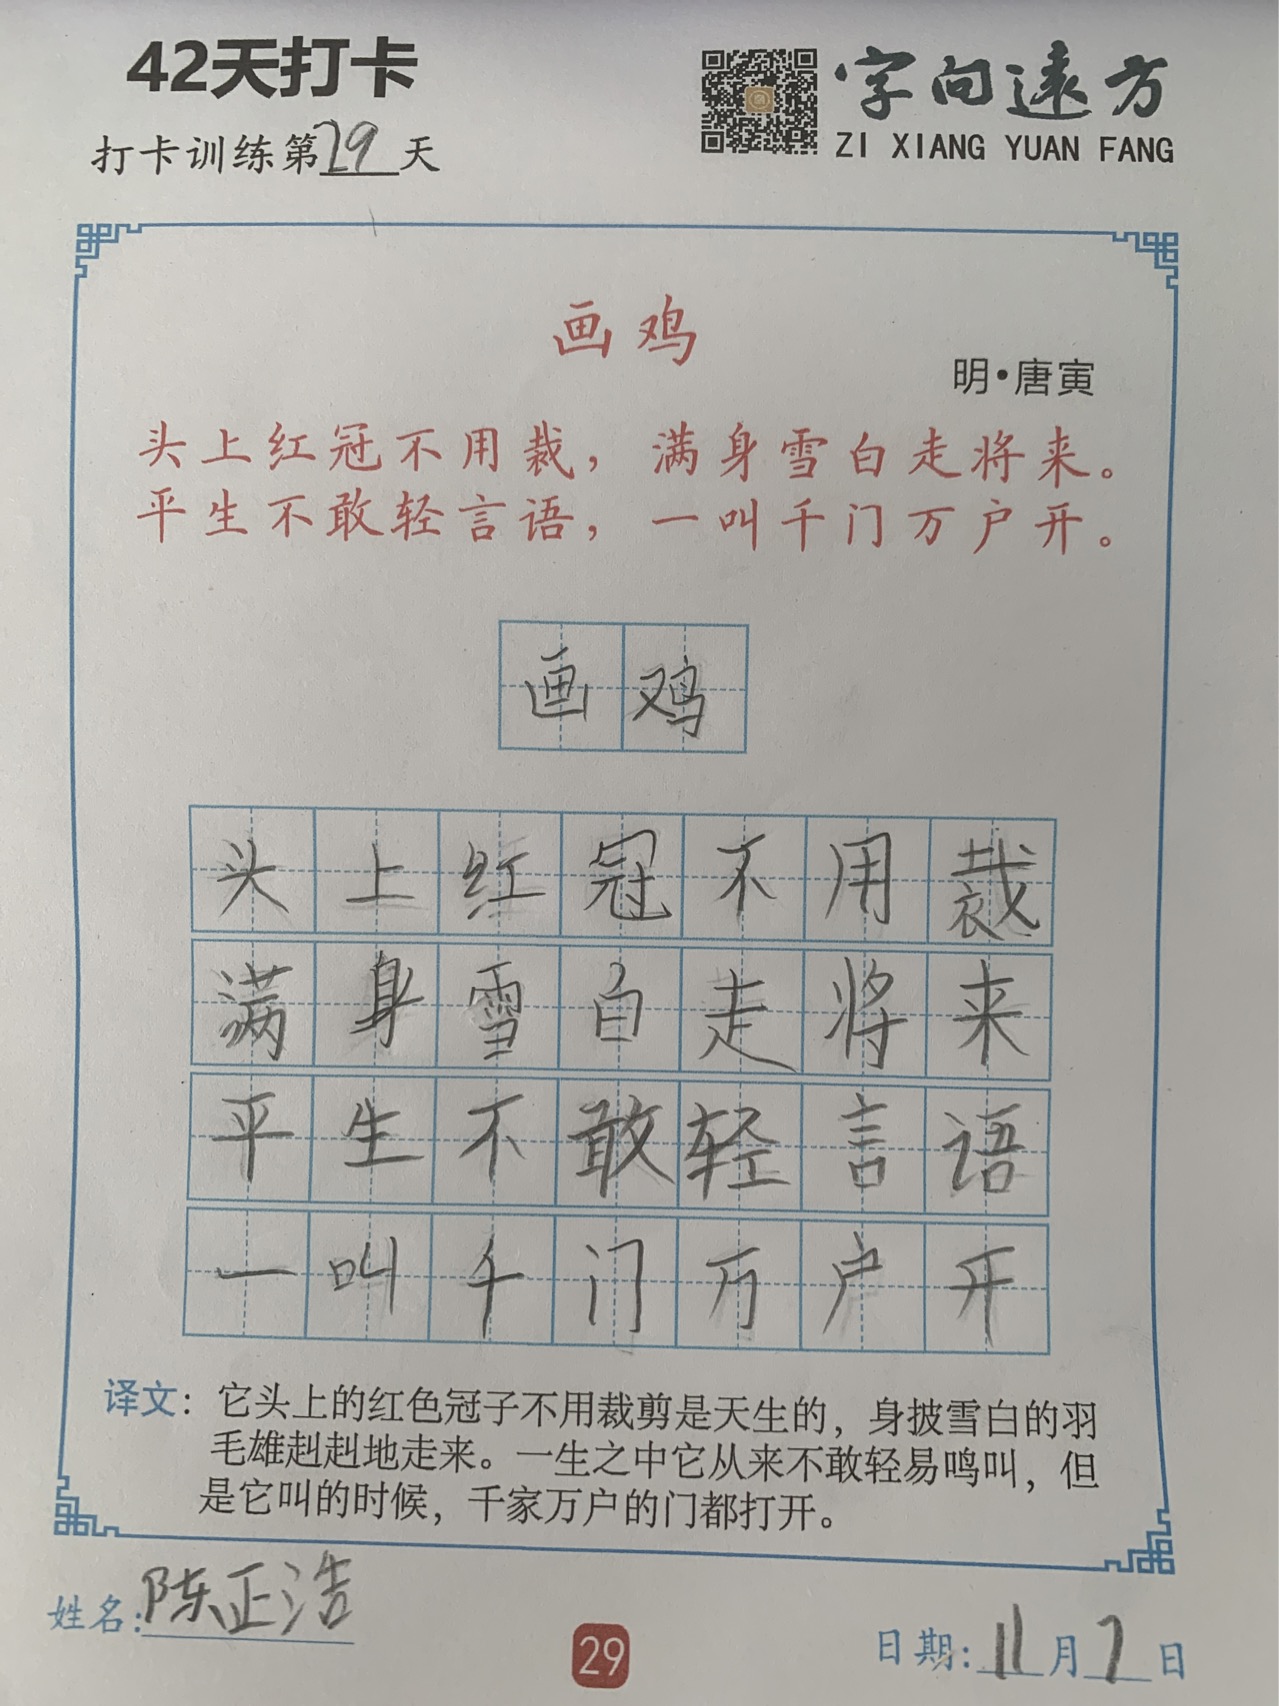 42天打卡
字向遠方
打卡训练第29天
ZI XIANG YUAN FANG
画鸡
明·唐寅
头上红冠不用裁，满身雪白走将来。
平生不敢轻言语，一叫千门万户开。
画鸡
头上红冠不用裁
满身雪白走将来
平生不敢轻言语
一叫千门万户开
译文：它头上的红色冠子不用裁剪是天生的，身披雪白的羽
毛雄赳赳地走来。一生之中它从来不敢轻易鸣叫，但
是它叫的时候，千家万户的门都打开。
姓名：陈正浩
29
日期：11月7日